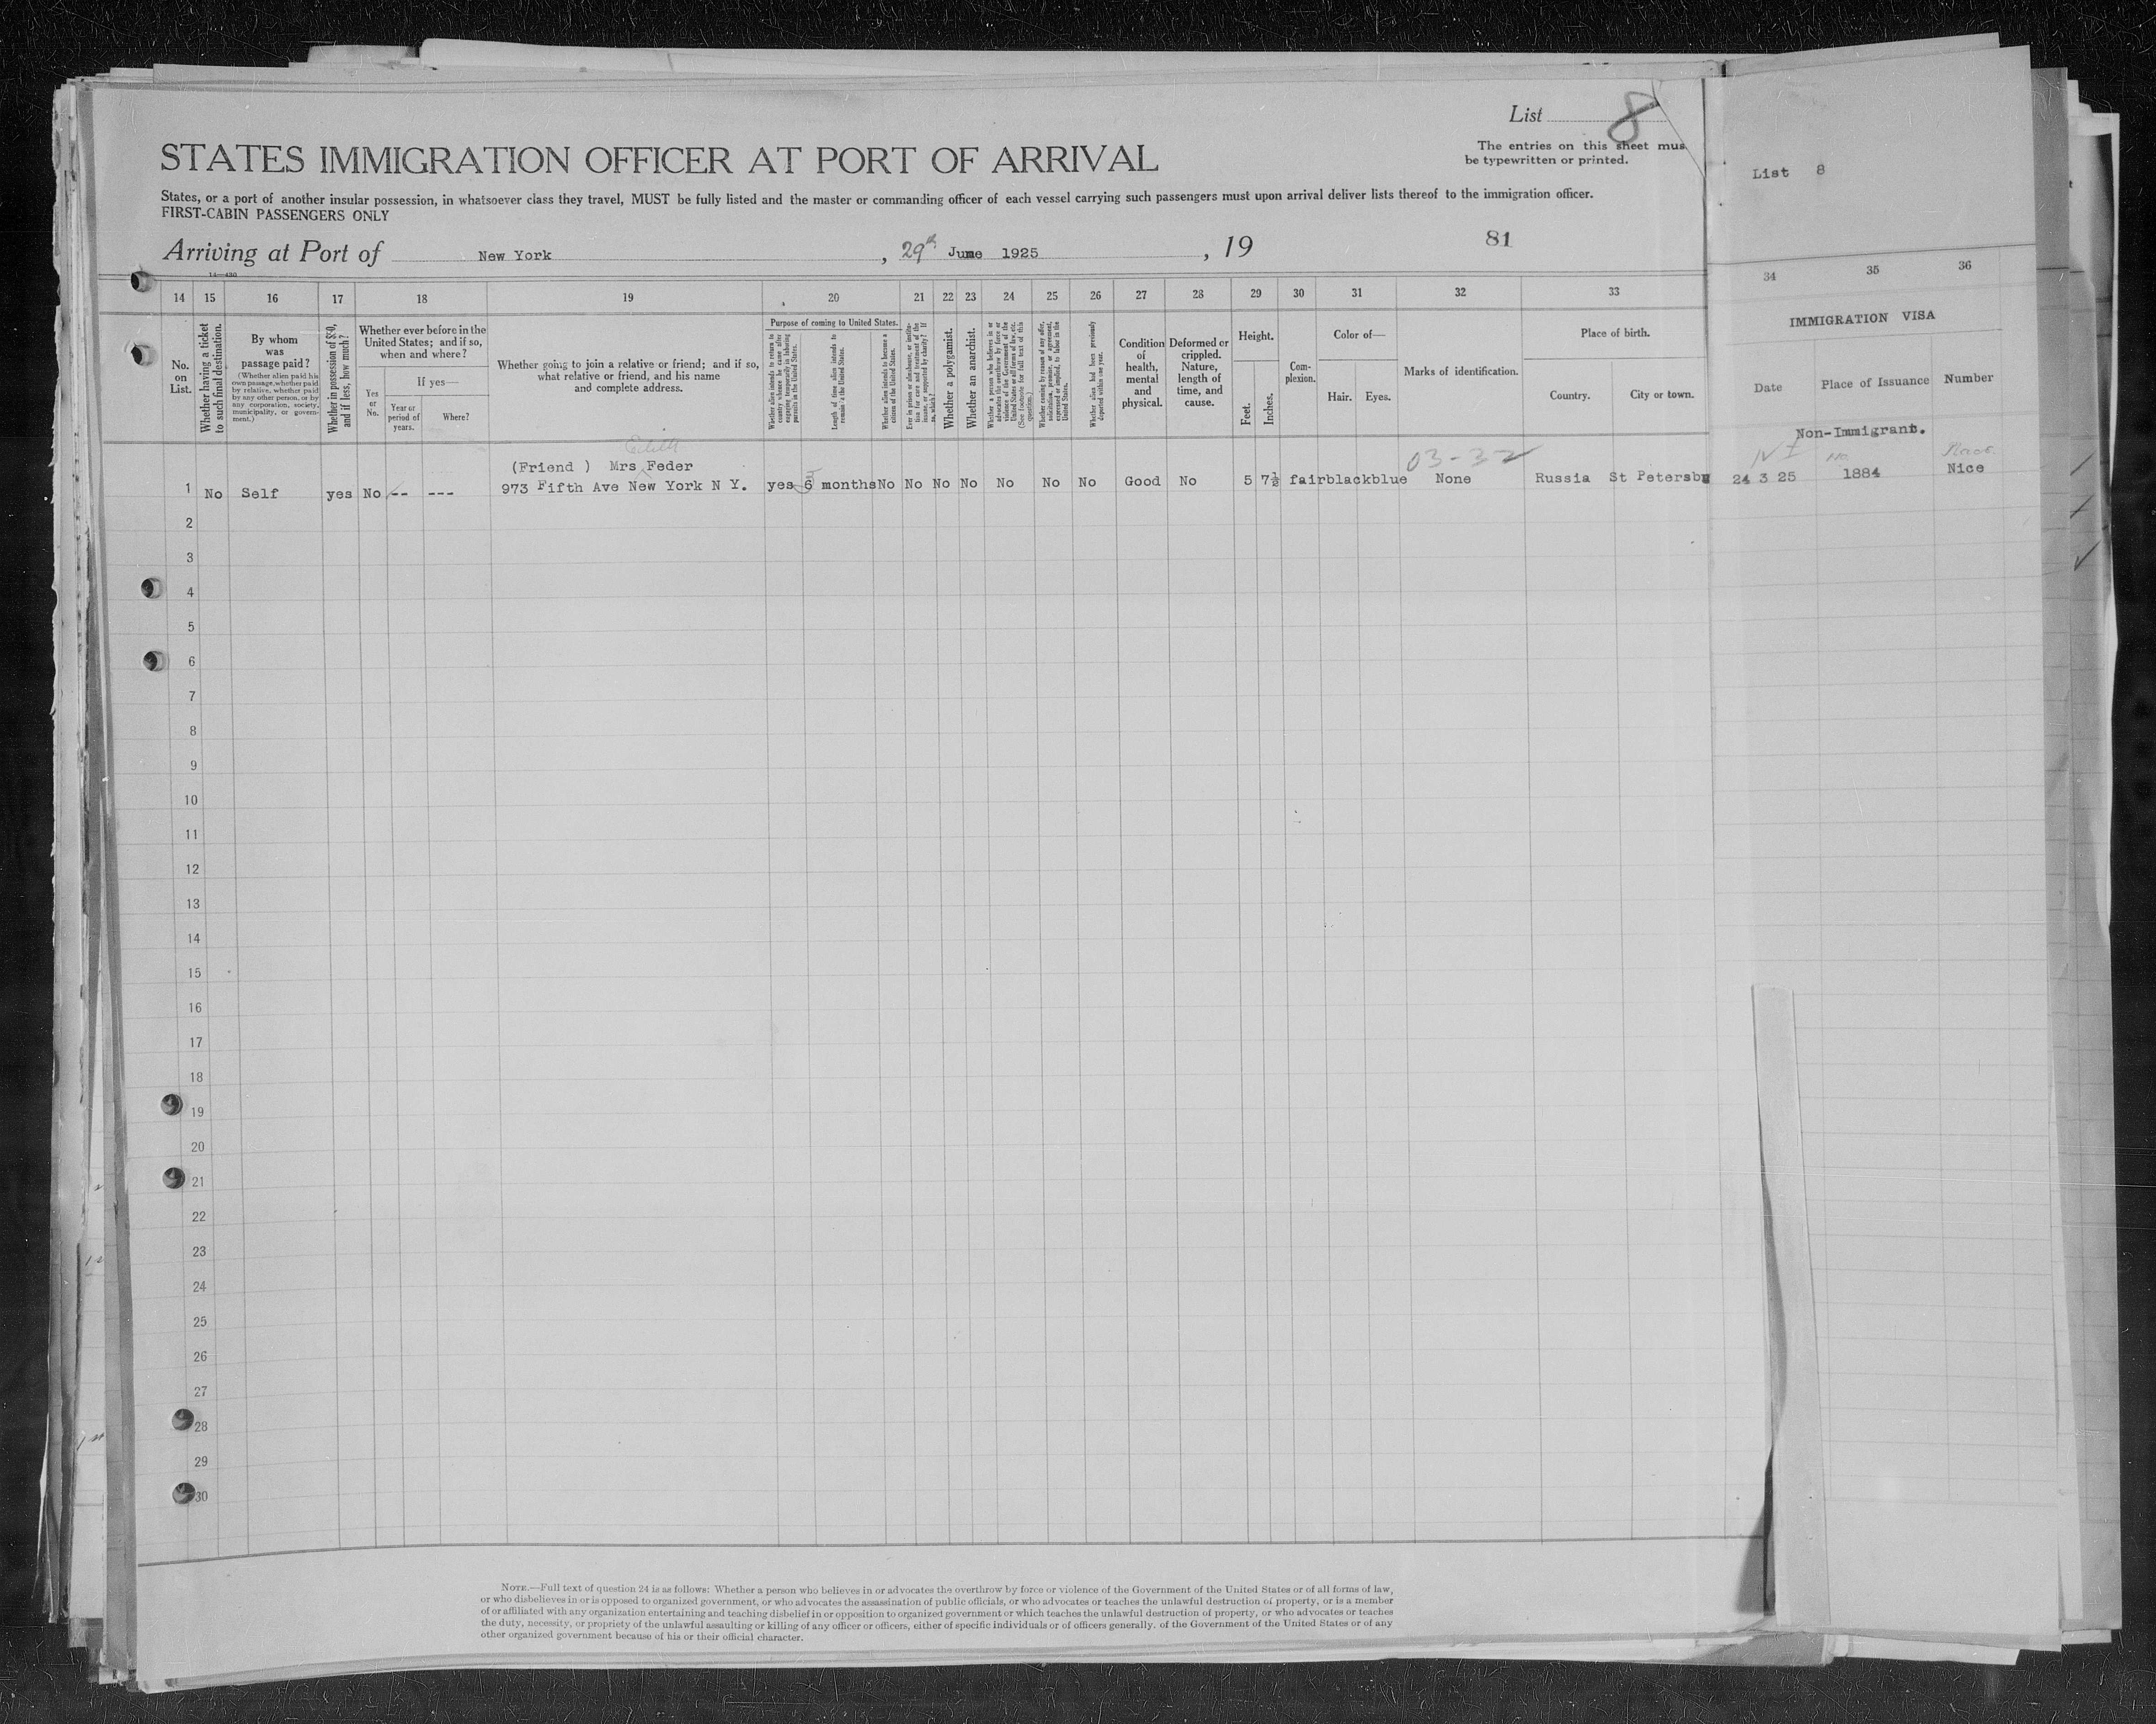 List 8
The entries on this sheet mus
be typewritten or printed.
STATES IMMIGRATION OFFICER AT PORT OF ARRIVAL
States, or a port of another insular possession, in whatsoever class they travel, MUST be fully listed and the master or commanding officer of each vessel carrying such passengers must upon arrival deliver lists thereof to the immigration officer.
FIRST-CABIN PASSENGERS ONLY
Arriving at Port of New York, 29th June 1925, 19
81
14—430
List 8
14 15 16 17 18 19 20 21 22 23 24 25 26 27 28 29 30 31 32 33 34 35 36
No. on List.
Whether having a ticket to such final destination.
By whom was passage paid?
(Whether alien paid his own passage, whether paid by relative, whether paid by any other person, or by any corporation, society, municipality, or government.)
Whether in possession of $50, and if less, how much?
Whether ever before in the United States; and if so, when and where?
Yes or No.
If yes—
Year or period of years.
Where?
Whether going to join a relative or friend; and if so, what relative or friend, and his name and complete address.
Purpose of coming to United States.
Whether alien intends to return to country whence he came after engaging temporarily in laboring pursuits in the United States.
Length of time alien intends to remain in the United States.
Whether alien intends to become a citizen of the United States.
Ever in prison or almshouse, or institution for care and treatment of the insane, or supported by charity? If so, which?
Whether a polygamist.
Whether an anarchist.
Whether a person who believes in or advocates the overthrow by force or violence of the Government of the United States or all forms of law, etc. (See footnote for full text of this question.)
Whether coming by reason of any offer, solicitation, promise, or agreement, expressed or implied, to labor in the United States.
Whether alien had been previously deported within one year.
Condition of health, mental and physical.
Deformed or crippled. Nature, length of time, and cause.
Height.
Feet. Inches.
Complexion.
Color of—
Hair. Eyes.
Marks of identification.
Place of birth.
Country. City or town.
IMMIGRATION VISA
Date Place of Issuance Number
Non-Immigrant.
Edith
(Friend ) Mrs Feder
03-32
NI
1 No Self yes No -- --- 973 Fifth Ave New York N Y. yes 6 months No No No No No No No Good No 5 7½ fair black blue None Russia St Petersbu 24 3 25 1884 Nice
2
3
4
5
6
7
8
9
10
11
12
13
14
15
16
17
18
19
20
21
22
23
24
25
26
27
28
29
30
NOTE.—Full text of question 24 is as follows: Whether a person who believes in or advocates the overthrow by force or violence of the Government of the United States or of all forms of law,
or who disbelieves in or is opposed to organized government, or who advocates the assassination of public officials, or who advocates or teaches the unlawful destruction of property, or is a member
of or affiliated with any organization entertaining and teaching disbelief in or opposition to organized government or which teaches the unlawful destruction of property, or who advocates or teaches
the duty, necessity, or propriety of the unlawful assaulting or killing of any officer or officers, either of specific individuals or of officers generally, of the Government of the United States or of any
other organized government because of his or their official character.